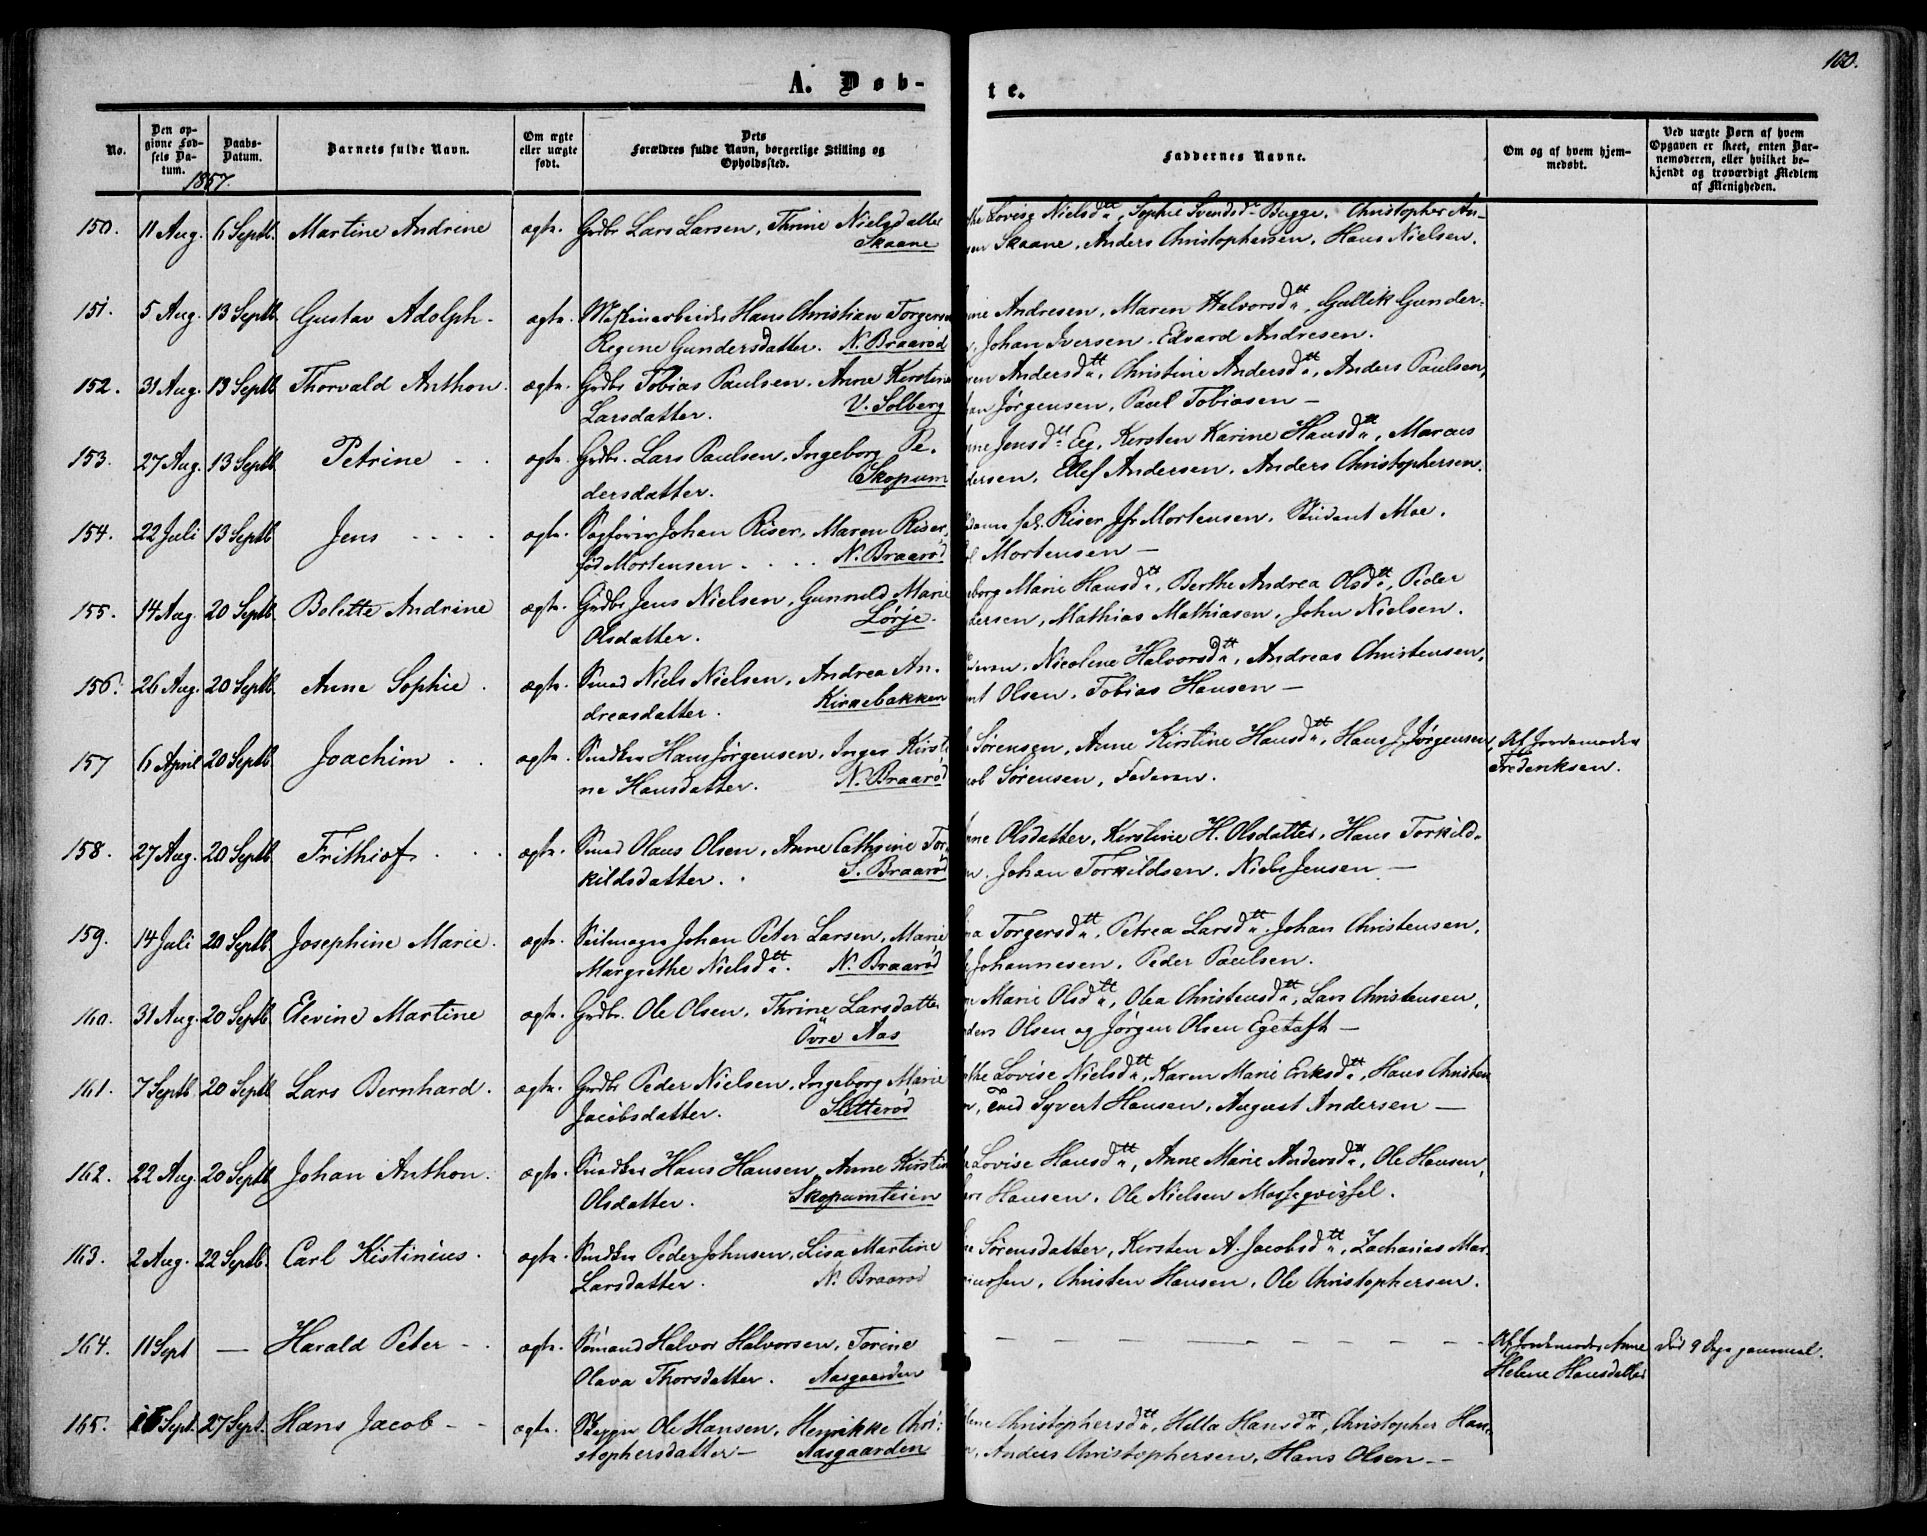 100.
A. Døb-
te.
No.
Den op-
givne Fød-
sels Da-
tum.
Daabs-
Datum.
Barnets fulde Navn.
Om ægte
eller uægte
født.
Dets
Forældres fulde Navn, borgerlige Stilling og
Opholdssted.
Faddernes Navne.
Om og af hvem hjem-
medøbt.
Ved uægte Børn af hvem
Opgaven er skeet, enten Bar-
nemoderen, eller hvilket be-
kjendt og troværdigt Medlem
af Menigheden.
1857.
150. 11 Aug. 6 Septb. Martine Andrine ægte. Grdbr Lars Larsen, Thrine Nielsdatter
Skaane
Lovise Nielsdtt, Sophie Svendsd Bugge. Christopher An-
sen Skaane, Anders Christophersen, Hans Nielsen.
151. 5 Aug. 13 Septb. Gustav Adolph - ægte. Maskinarbeider Hans Christian Torgersen
Regine Gundersdatter. N. Braarød
Andresen, Maren Halvorsdtt, Gullik Gunder-
Johan Iversen, Edvard Andresen.
152. 31 Aug. 13 Septb. Thorvald Anthon. ægte. Grdbr Tobias Paulsen. Anne Kirstine
Larsdatter. V. Solberg
Andersdtt, Christine Andersdtt, Anders Paulsen,
Jørgensen, Paul Tobiasen -
153. 27 Aug. 13 Septb. Petrine ægte. Grdbr. Lars Paulsen, Ingeborg Pe-
dersdatter. Skopum
Jensdtt Eg, Kersten Karine Hansdtt, Marcus
dersen, Ellef Andersen, Anders Christophersen.
154. 22 Juli 13 Septb Jens ægte. Sagfører Johan Riser, Maren Riser,
fød Mortensen. N. Braarød
Riser Jfr Mortensen. Student Moe.
Mortensen -
155. 14 Aug. 20 Septb. Bolette Andrine ægte. Grdbr Jens Nielsen, Gunnild Marie
Olsdatter. Lørje.
borg Marie Hansdtt, Berthe Andrea Olsdtt, Peder
dersen, Mathias Mathiasen, John Nielsen.
156. 26 Aug. 20 Septb. Anne Sophie. ægte. Smed Niels Nielsen, Andrea An-
dreasdatter. Kirkebakken
Nicolene Halvorsdtt, Andreas Christensen,
Olsen, Tobias Hansen -
157 6 April 20 Septb. Joachim ægte. Snedker Hans Jørgensen, Inger Kirsti-
ne Hansdatter. N. Braarød
Sørensen, Anne Kirstine Hansdtt, Hans J. Jørgensen
Sørensen, Faderen.
Af Jordemoder
Frederiksen.
158. 27 Aug. 20 Septb. Frithiof ægte. Smed Olaus Olsen, Anne Cathrine Tor-
kildsdatter. S. Braarød
Olsdatter, Kirstine H. Olsdatter, Hans Torkild-
Johan Torkildsen. Niels Jensen -
159. 14 Juli 20 Septb. Josephine Marie. ægte. Seilmager Johan Peter Larsen, Marie
Margrethe Nielsdtt. N. Braarød
Torgersdtt, Petrea Larsdtt. Johan Christensen,
Johannesen, Peder Paulsen.
160. 31 Aug. 20 Septb. Elevine Martine ægte. Grdbr. Ole Olsen, Thrine Larsdatter
Övre Aas
Marie Olsdtt, Olea Christensdtt, Lars Christensen,
ders Olsen og Jørgen Olsen Egetaft -
161. 7 Septb. 20 Septb Lars Bernhard. ægte. Grdbr Peder Nielsen, Ingeborg Marie
Jacobsdatter. Sletterød
the Lovise Nielsdtt, Karen Marie Eriksdtt, Hans Christen
Syvert Hansen, August Andersen -
162. 22 Aug. 20 Septb Johan Anthon. ægte. Snedker Hans Hansen, Anne Kirstin
Olsdatter. Skopumteien
Lovise Hansdtt, Anne Marie Andersdtt, Ole Hansen,
Hansen. Ole Nielsen
163. 2 Aug. 22 Septb. Carl Kistinius. ægte. Snedker Peder Johnsen, Lisa Martine
Larsdatter. N. Braarød
Sørensdatter, Kersten A. Jacobsdtt, Zacharias Mar-
Christen Hansen, Ole Christophersen.
164. 11 Sept - Harald Peter - ægte. Sømand Halvor Halvorsen, Torine
Olava Thorsdatter. Aasgaarden
Af Jordemoder Anne
Helene Hansdatter
død 9 Dage gammel.
165. Sept. 27 Sept. Hans Jacob - - ægte. Skipper Ole Hansen, Henrikke Chri-
stophersdatter - Aasgaarden
Christophersdtt, Hella Hansdtt, Christopher Han-
Anders Christophersen, Hans Olsen -